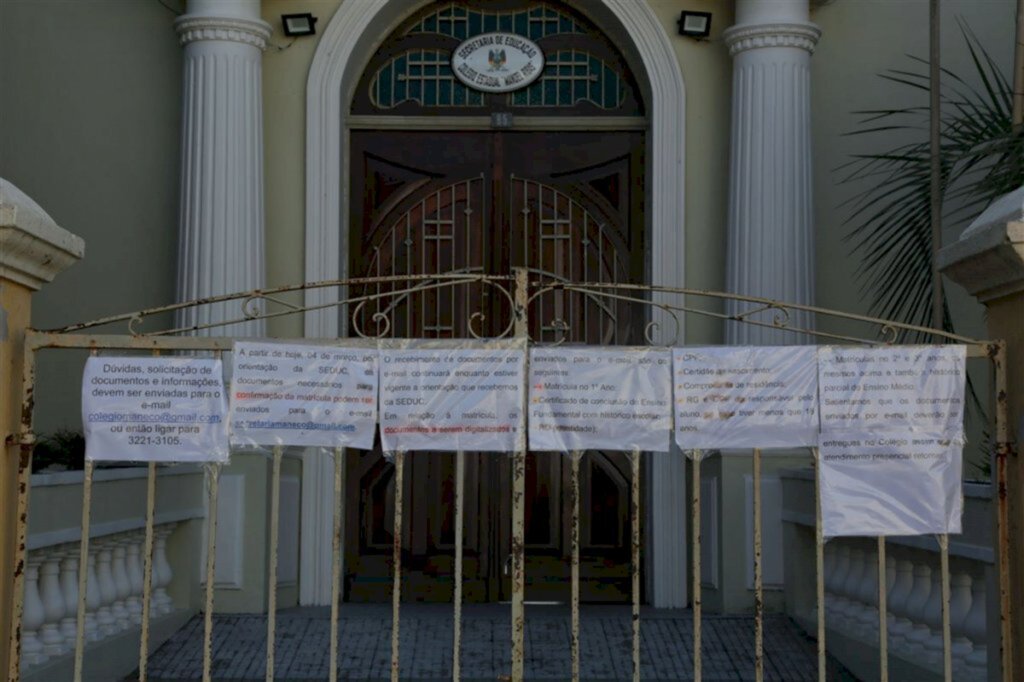 SECRETARIA DE EDUCAÇÃO
COLÉGIO ESTADUAL MANOEL RIBAS
Dúvidas, solicitação de
documentos e informações,
devem ser enviadas para o
e-mail
colegiomaneco@gmail.com,
ou então ligar para
3221-3105.
A partir de hoje, 04 de março, por
orientação da SEDUC, os
documentos necessários para
confirmação da matrícula podem ser
enviados para o e-mail
secretariamaneco@gmail.com
O recebimento de documentos por
e-mail continuará enquanto estiver
vigente a orientação que recebemos
da SEDUC.
Em relação à matrícula, os
documentos a serem digitalizados e
enviados para o e-mail são os
seguintes:
Matrícula no 1º Ano:
Certificado de conclusão do Ensino
Fundamental com histórico escolar;
RG (identidade);
CPF;
Certidão de nascimento;
Comprovante de residência;
RG e CPF do responsável pelo
aluno, se tiver menos que 18
anos.
Matrículas no 2º e 3º anos,
mesmos acima e também histórico
parcial do Ensino Médio.
Salientamos que os documentos
enviados por e-mail deverão ser
entregues no Colégio assim que
atendimento presencial retornar.